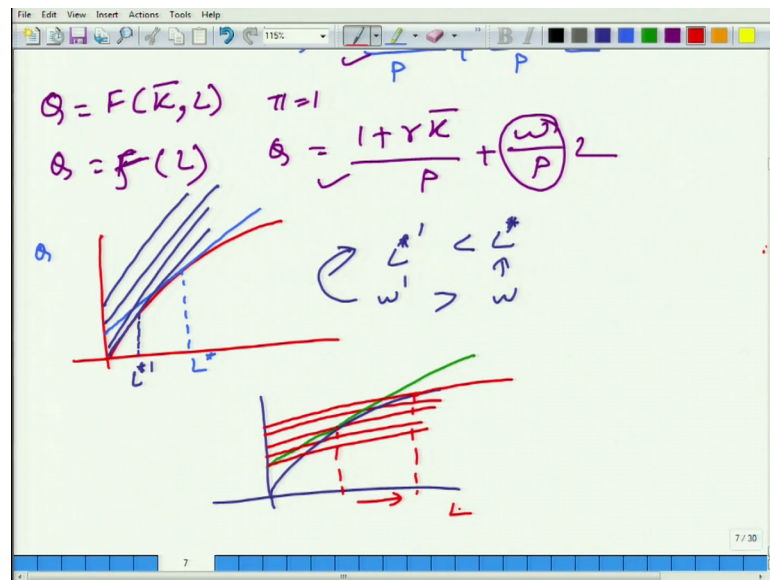 File Edit View Insert Actions Tools Help
115%
B I
P P
Q = F(K̅, L) π=1
Q = f(L) Q = 1 + rK̅ / P + (w/P) L
Q
L*' < L*
↑
w' > w
L*' L*
L
7 / 30
7